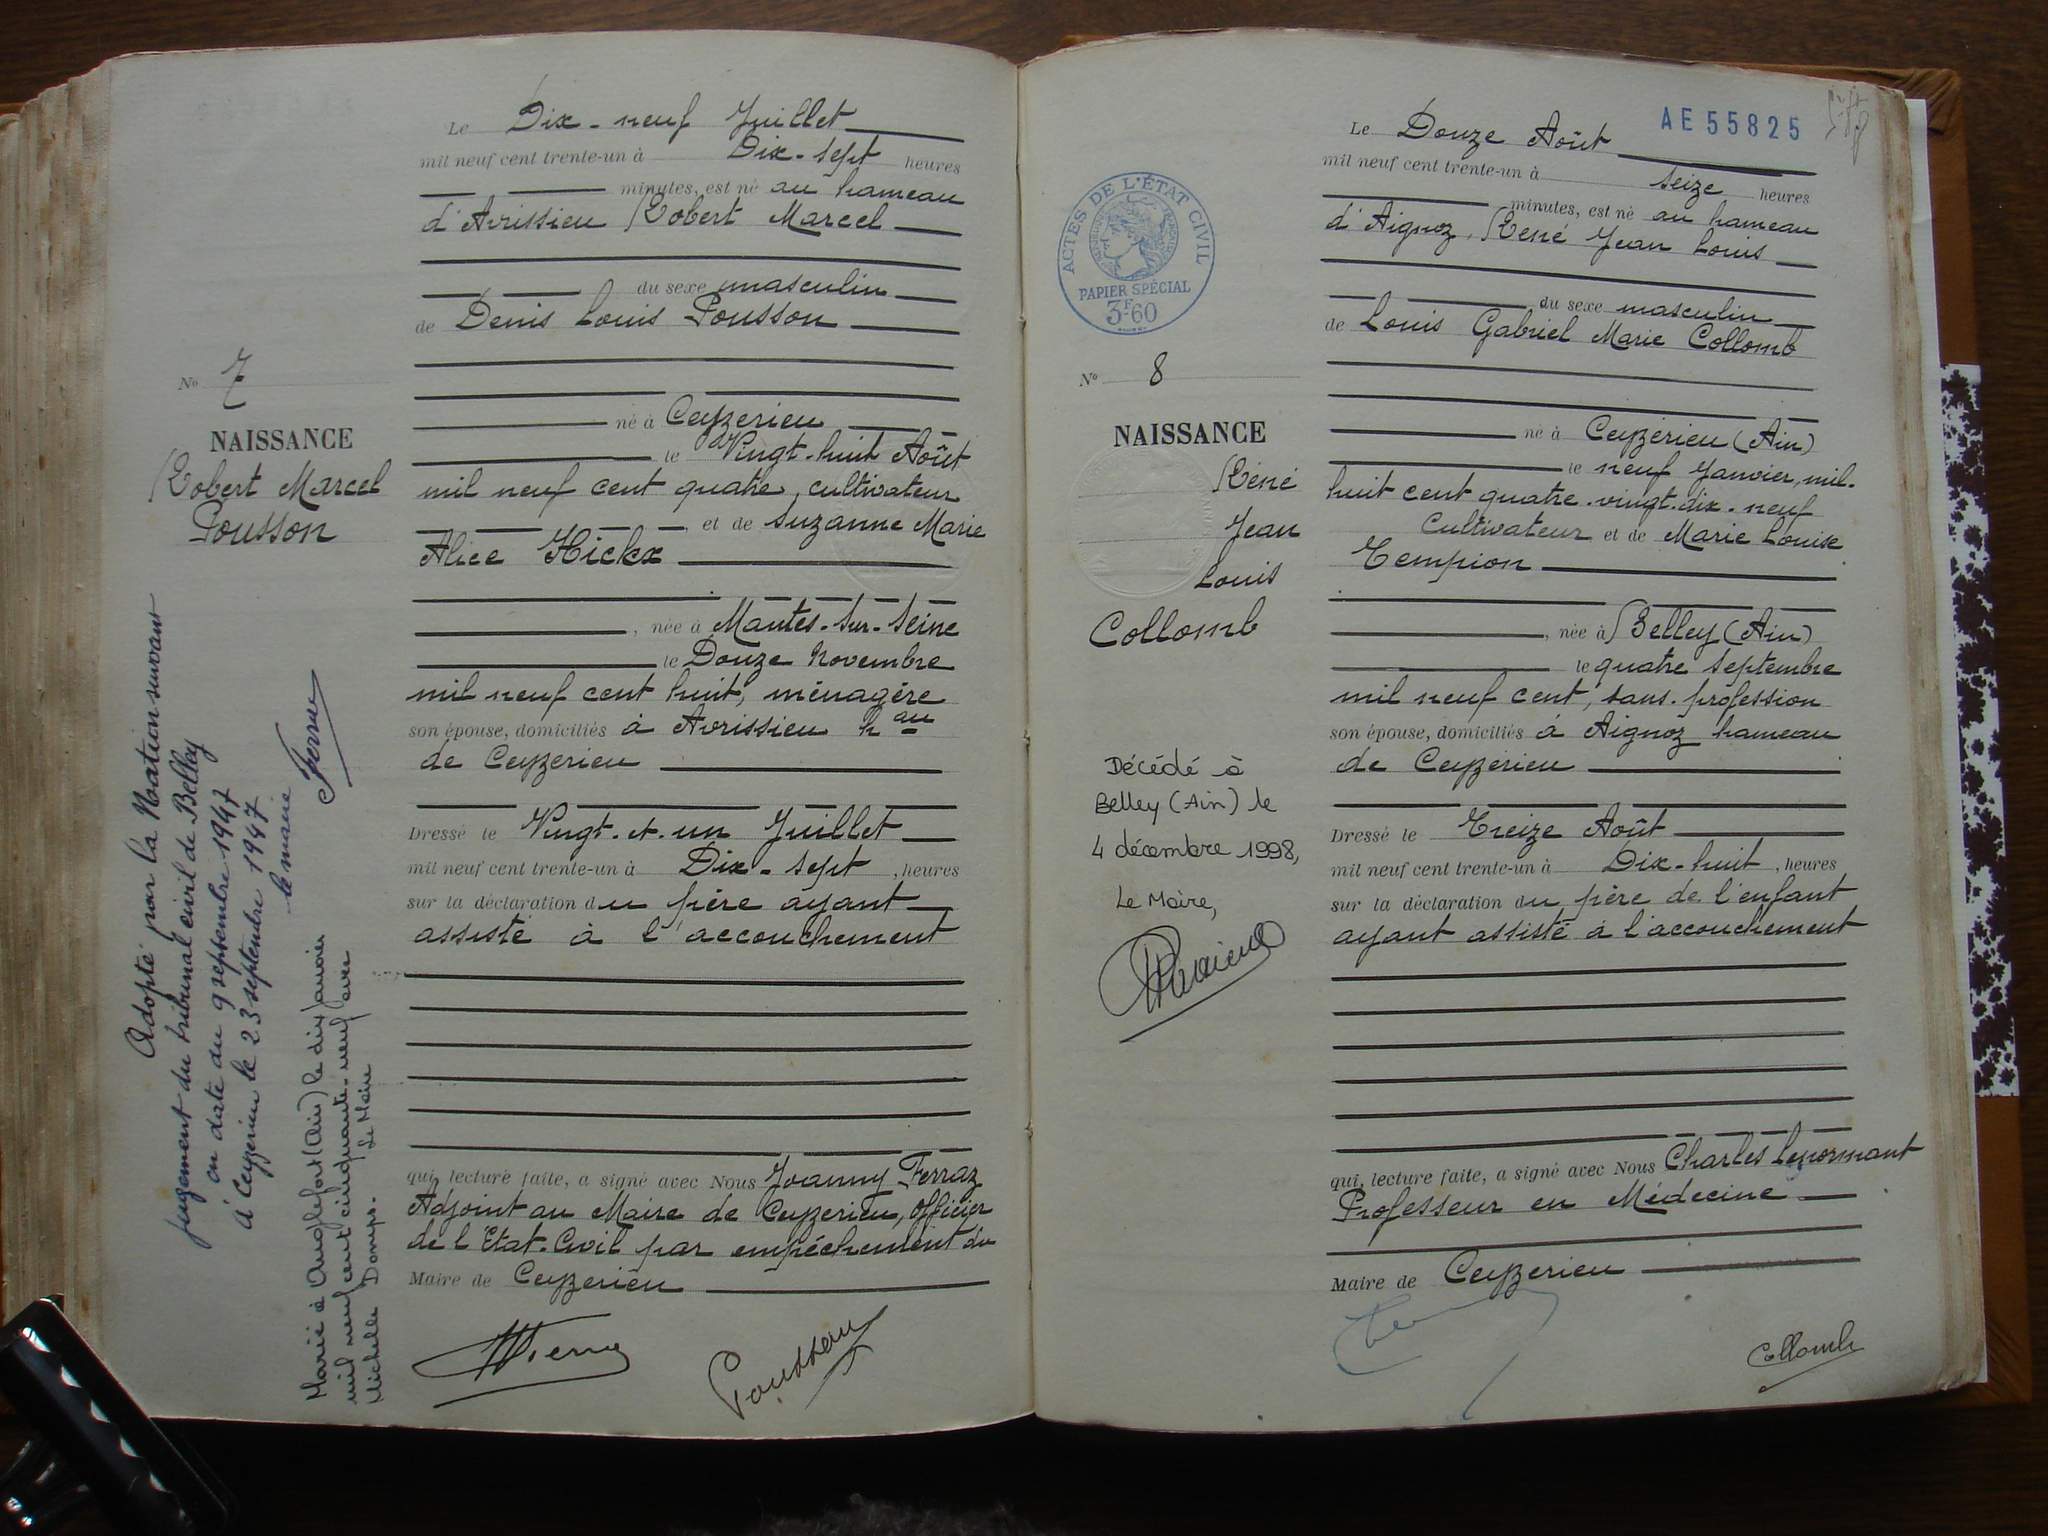 Le Dix-neuf Juillet
mil neuf cent trente-un à Dix-sept heures
minutes, est né au hameau
d'Avrissieu Robert Marcel
du sexe masculin
de Denis Louis Pousson
né à Ceyzerieu
le Vingt-huit Août
mil neuf cent quatre, cultivateur
et de Suzanne Marie
Alice Hickx
, née à Mantes-sur-Seine
le Douze Novembre
mil neuf cent huit, ménagère
son épouse, domiciliés à Avrissieu hau
de Ceyzerieu
Dressé le Vingt-et-un Juillet
mil neuf cent trente-un à Dix-sept, heures
sur la déclaration du père ayant
assisté à l'accouchement
qui, lecture faite, a signé avec Nous Joanny Ferraz
Adjoint au Maire de Ceyzerieu, Officier
de l'Etat-Civil par empéchement du
Maire de Ceyzerieu
Pousson
No 7
NAISSANCE
Robert Marcel
Pousson
Adopté par la Nation suivant
jugement du tribunal civil de Belley
en date du 9 septembre 1947
à Ceyzerieu le 23 septembre 1947
le maire
Marié à Anglefort (Ain) le dix janvier
mil neuf cent cinquante-neuf avec
Michelle Domps. Le Maire
AE 55825
Le Douze Août
mil neuf cent trente-un à seize heures
minutes, est né au hameau
d'Aignoz, René Jean Louis
du sexe masculin
de Louis Gabriel Marie Collomb
né à Ceyzérieu (Ain)
le neuf Janvier, mil-
huit cent quatre-vingt-dix-neuf
Cultivateur et de Marie Louise
Tempion
, née à Belley (Ain)
le quatre septembre
mil neuf cent, sans-profession
son épouse, domiciliés à Aignoz hameau
de Ceyzerieu
Dressé le Treize Août
mil neuf cent trente-un à Dix-huit, heures
sur la déclaration du père de l'enfant
ayant assisté à l'accouchement
qui, lecture faite, a signé avec Nous Charles Lenormant
Professeur en Médecine
Maire de Ceyzerieu
Collomb
ACTES DE L'ÉTAT CIVIL
PAPIER SPÉCIAL
3F60
No 8
NAISSANCE
René
Jean
Louis
Collomb
Décédé à
Belley (Ain) le
4 décembre 1998,
Le Maire,